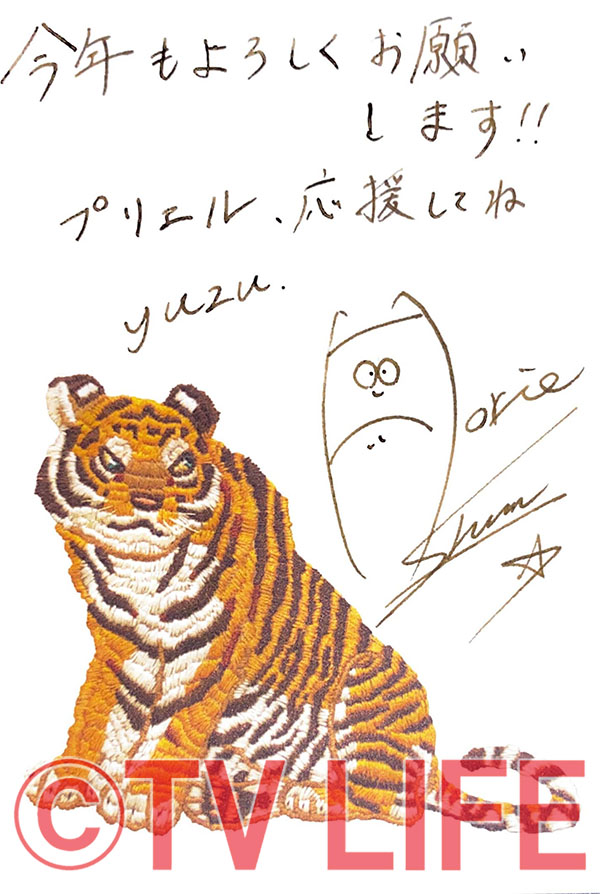 今年もよろしくお願い
します!!
プリエール、応援してね
yuzu.
Horie
Shun
©TV LIFE